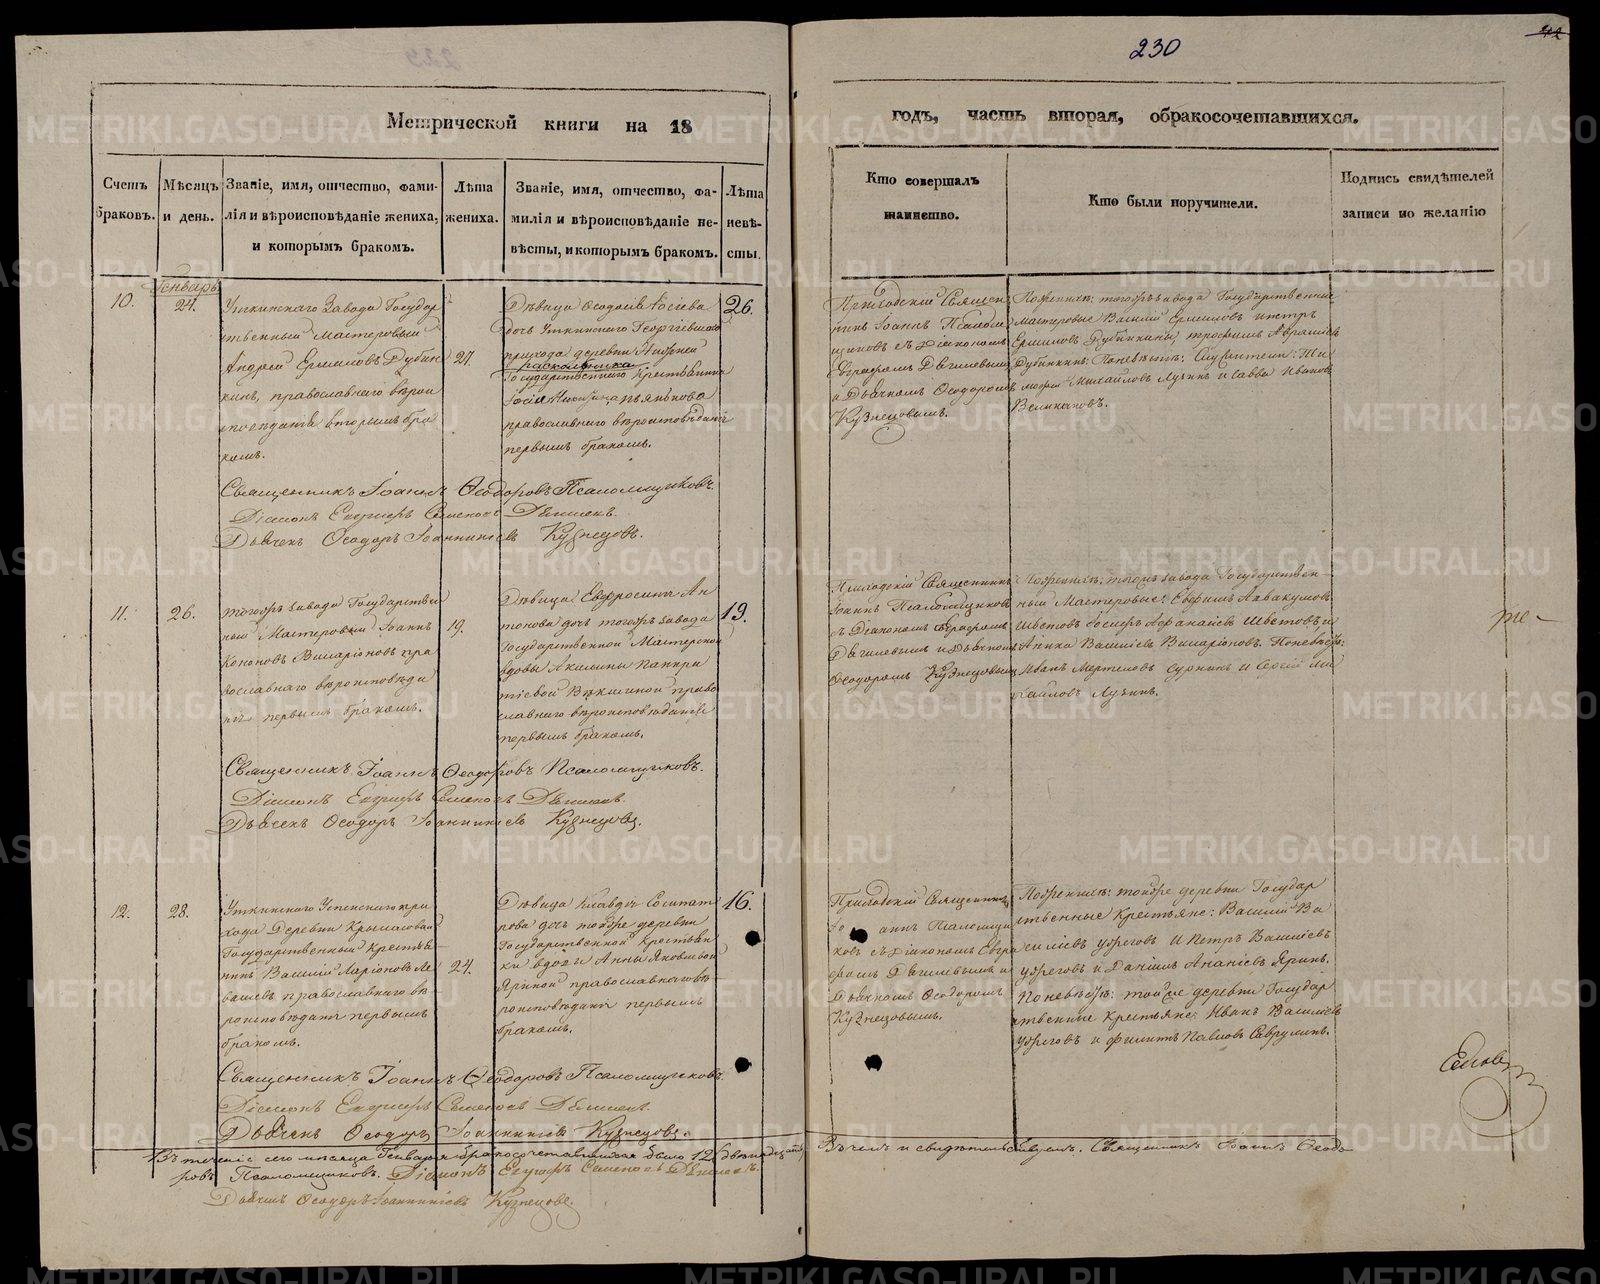 230
Метрической книги на 18
годъ, часть вторая, обракосочетавшихся.
Счетъ браковъ.
Мѣсяцъ и день.
Званіе, имя, отчество, фами-
лія и вѣроисповѣданіе жениха,
и которымъ бракомъ.
Лѣта
жениха.
Званіе, имя, отчество, фа-
милія и вѣроисповѣданіе не-
вѣсты, и которымъ бракомъ.
Лѣта
невѣ-
сты.
Кто совершалъ
таинство.
Кто были поручители.
Подпись свидѣтелей
записи по желанію
Генварь
10.
24.
Уткинскаго Завода Государ
ственный Мастеровый
Андрей Ермиловъ Дубин
кинъ, православнаго вѣрои
сповѣданія вторымъ бра
комъ.
27.
Дѣвица Ѳеодосія Іосіева
дочь Уткинскаго Георгіевскаго
прихода деревни
раскольника
Государственнаго Крестьянина
православнаго вѣроисповѣданія
первымъ бракомъ.
26.
Приходскій Священ
никъ Іоаннъ Псалом
щиковъ съ Діакономъ
Евграфомъ Дягилевымъ
и Дьячкомъ Ѳеодоромъ
Кузнецовымъ.
По женихѣ: тогожъ завода Государственные
Мастеровые Василій Ермиловъ и Петръ
Ермиловъ Дубинкины, Трофимъ
Дубинкинъ: По невѣстѣ:
Михайловъ Лузинъ и Савва Ивановъ
Великановъ.
Священникъ Іоаннъ Ѳеодоровъ Псаломщиковъ.
Діаконъ Евграфъ Семеновъ Дягилевъ.
Дьячекъ Ѳеодоръ Іоанникіевъ Кузнецовъ.
11.
26.
Тогожъ завода Государствен
ный Мастеровый Іоаннъ
Кононовъ Виларіоновъ пра
вославнаго вѣроисповѣда
нія первымъ бракомъ.
19.
Дѣвица Евфросинія Ан
тонова дочь тогожъ завода
Государственной Мастерской
вдовы Акилины Панкра
тіевой право
славнаго вѣроисповѣданія
первымъ бракомъ.
19.
Приходскій Священникъ
Іоаннъ Псаломщиковъ
съ Діакономъ Евграфомъ
Дягилевымъ и Дьячкомъ
Ѳеодоромъ Кузнецовымъ
По женихѣ: тогожъ завода Государствен-
ный Мастеровые: Ефимъ Аввакумовъ
Шветовъ Іосифъ Афанасіевъ Шветовъ и
Аника Василіевъ Виларіоновъ. По невѣстѣ:
Иванъ и Сергій Ми
хайловъ Лузинъ.
Священникъ Іоаннъ Ѳеодоровъ Псаломщиковъ.
Діаконъ Евграфъ Семеновъ Дягилевъ.
Дьячекъ Ѳеодоръ Іоанникіевъ Кузнецовъ.
12.
28.
Уткинскаго Успенскаго при
хода Деревни Крыласовой
Государственный Крестья-
нинъ Василій Ларіоновъ
православнаго вѣ-
роисповѣданія первымъ
бракомъ.
24.
Дѣвица Клавдія Сосипат
рова дочь тойже деревни
Государственной Крестьян
ки вдовы Анны Яковлевой
Яриной православнаго вѣ-
роисповѣданія первымъ
бракомъ.
16.
Приходскій Священникъ
Іоаннъ Псаломщи
ковъ съ Діакономъ Евгра
фомъ Дягилевымъ и
Дьячкомъ Ѳеодоромъ
Кузнецовымъ.
По женихѣ: тойже деревни Государ
ственные Крестьяне: Василій Ва
силіевъ и Петръ Василіевъ
и Даніилъ Ананіевъ Яринъ.
По невѣстѣ: тойже деревни Государ
ственные Крестьяне: Иванъ Василіевъ
и Филиппъ Павловъ
Священникъ Іоаннъ Ѳеодоровъ Псаломщиковъ.
Діаконъ Евграфъ Семеновъ Дягилевъ.
Дьячекъ Ѳеодоръ Іоанникіевъ Кузнецовъ.
Въ теченіе сего мѣсяца Генваря бракосочетавшихся было 12 (двѣнадцать)
Въ чемъ и свидѣтельствуемъ. Священникъ Іоаннъ Ѳеодо
ровъ Псаломщиковъ. Діаконъ Евграфъ Семеновъ Дягилевъ.
Дьячекъ Ѳеодоръ Іоанникіевъ Кузнецовъ.
METRIKI.GASO-URAL.RU